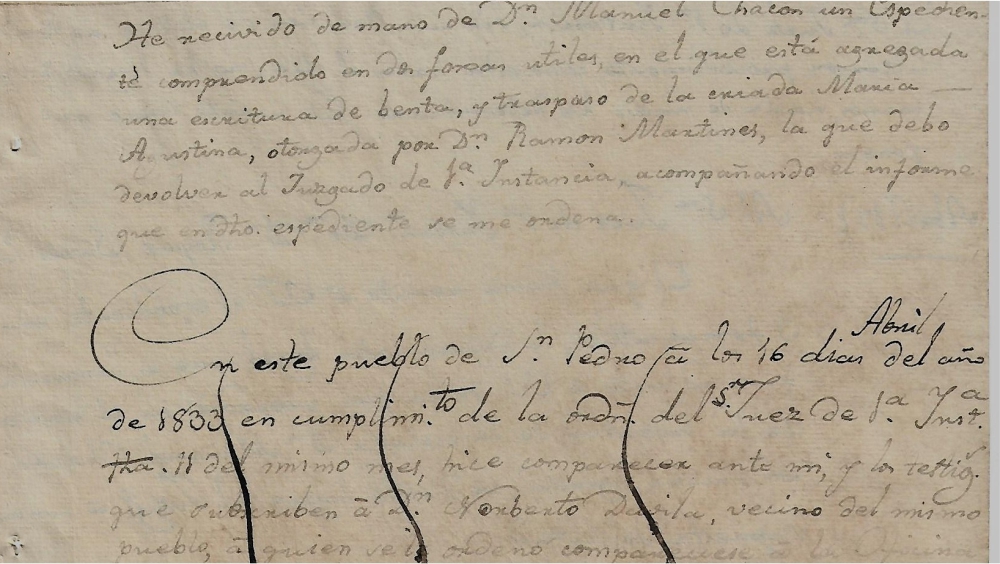 He recivido de mano de Dn Manuel Chacon un Espedien-
te comprendido en dos foxas utiles, en el que está agregada
una escritura de benta, y traspaso de la criada Maria —
Agustina, otorgada por Dn. Ramon Martines, la que debo
devolver al Juzgado de 1a. Instancia, acompañando el informe
que en dho. espediente se me ordena.
Abril
En este pueblo de Sn. Pedro â los 16 dias del año
de 1833 en cumplimi.to de la ordn. del Sr. Juez de 1a. Ynsta.
fha. 11 del mismo mes, hice comparecer ante mi, y los testigs.
que subscriben â Dn. Norberto Davila, vecino del mismo
pueblo, â quien se le ordeno compareciese â la oficina